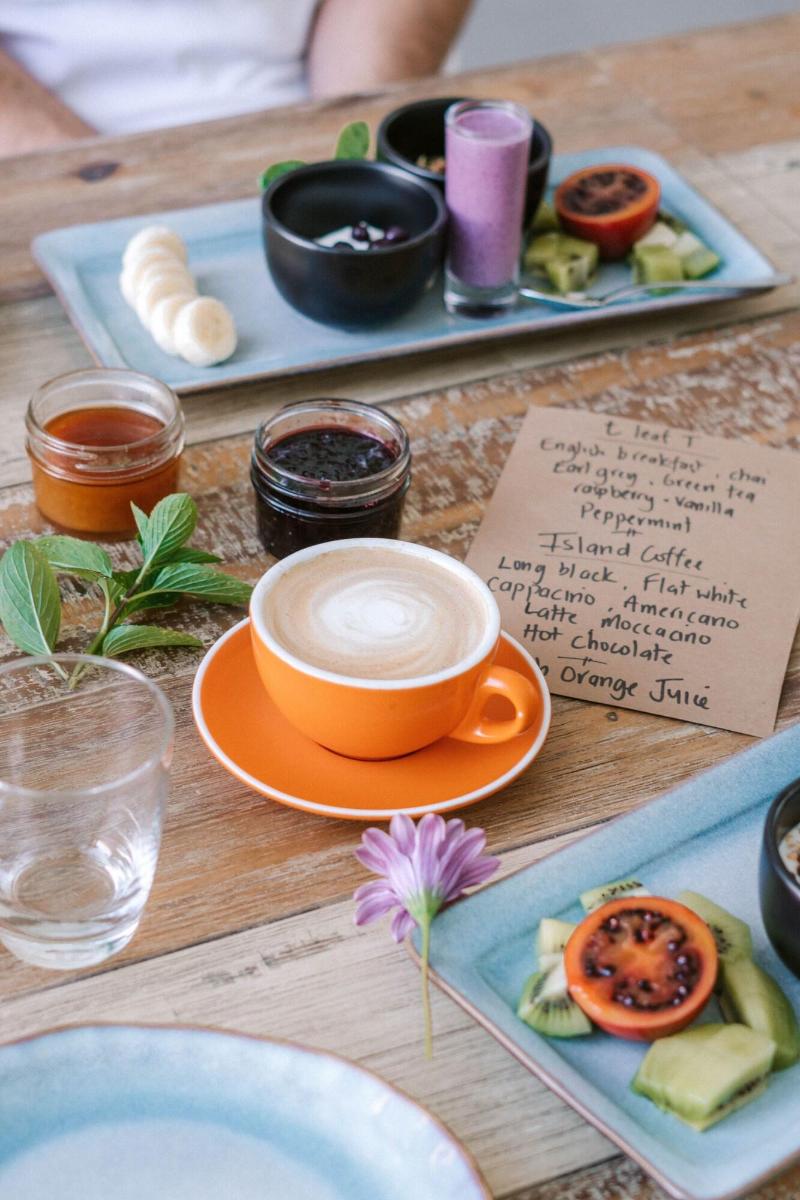 t leaf T
English breakfast, chai
Earl grey, Green tea
raspberry - Vanilla
Peppermint
Island Coffee
Long black, Flat white
Cappucino, Americano
Latte Moccacino
Hot Chocolate
Orange Juice